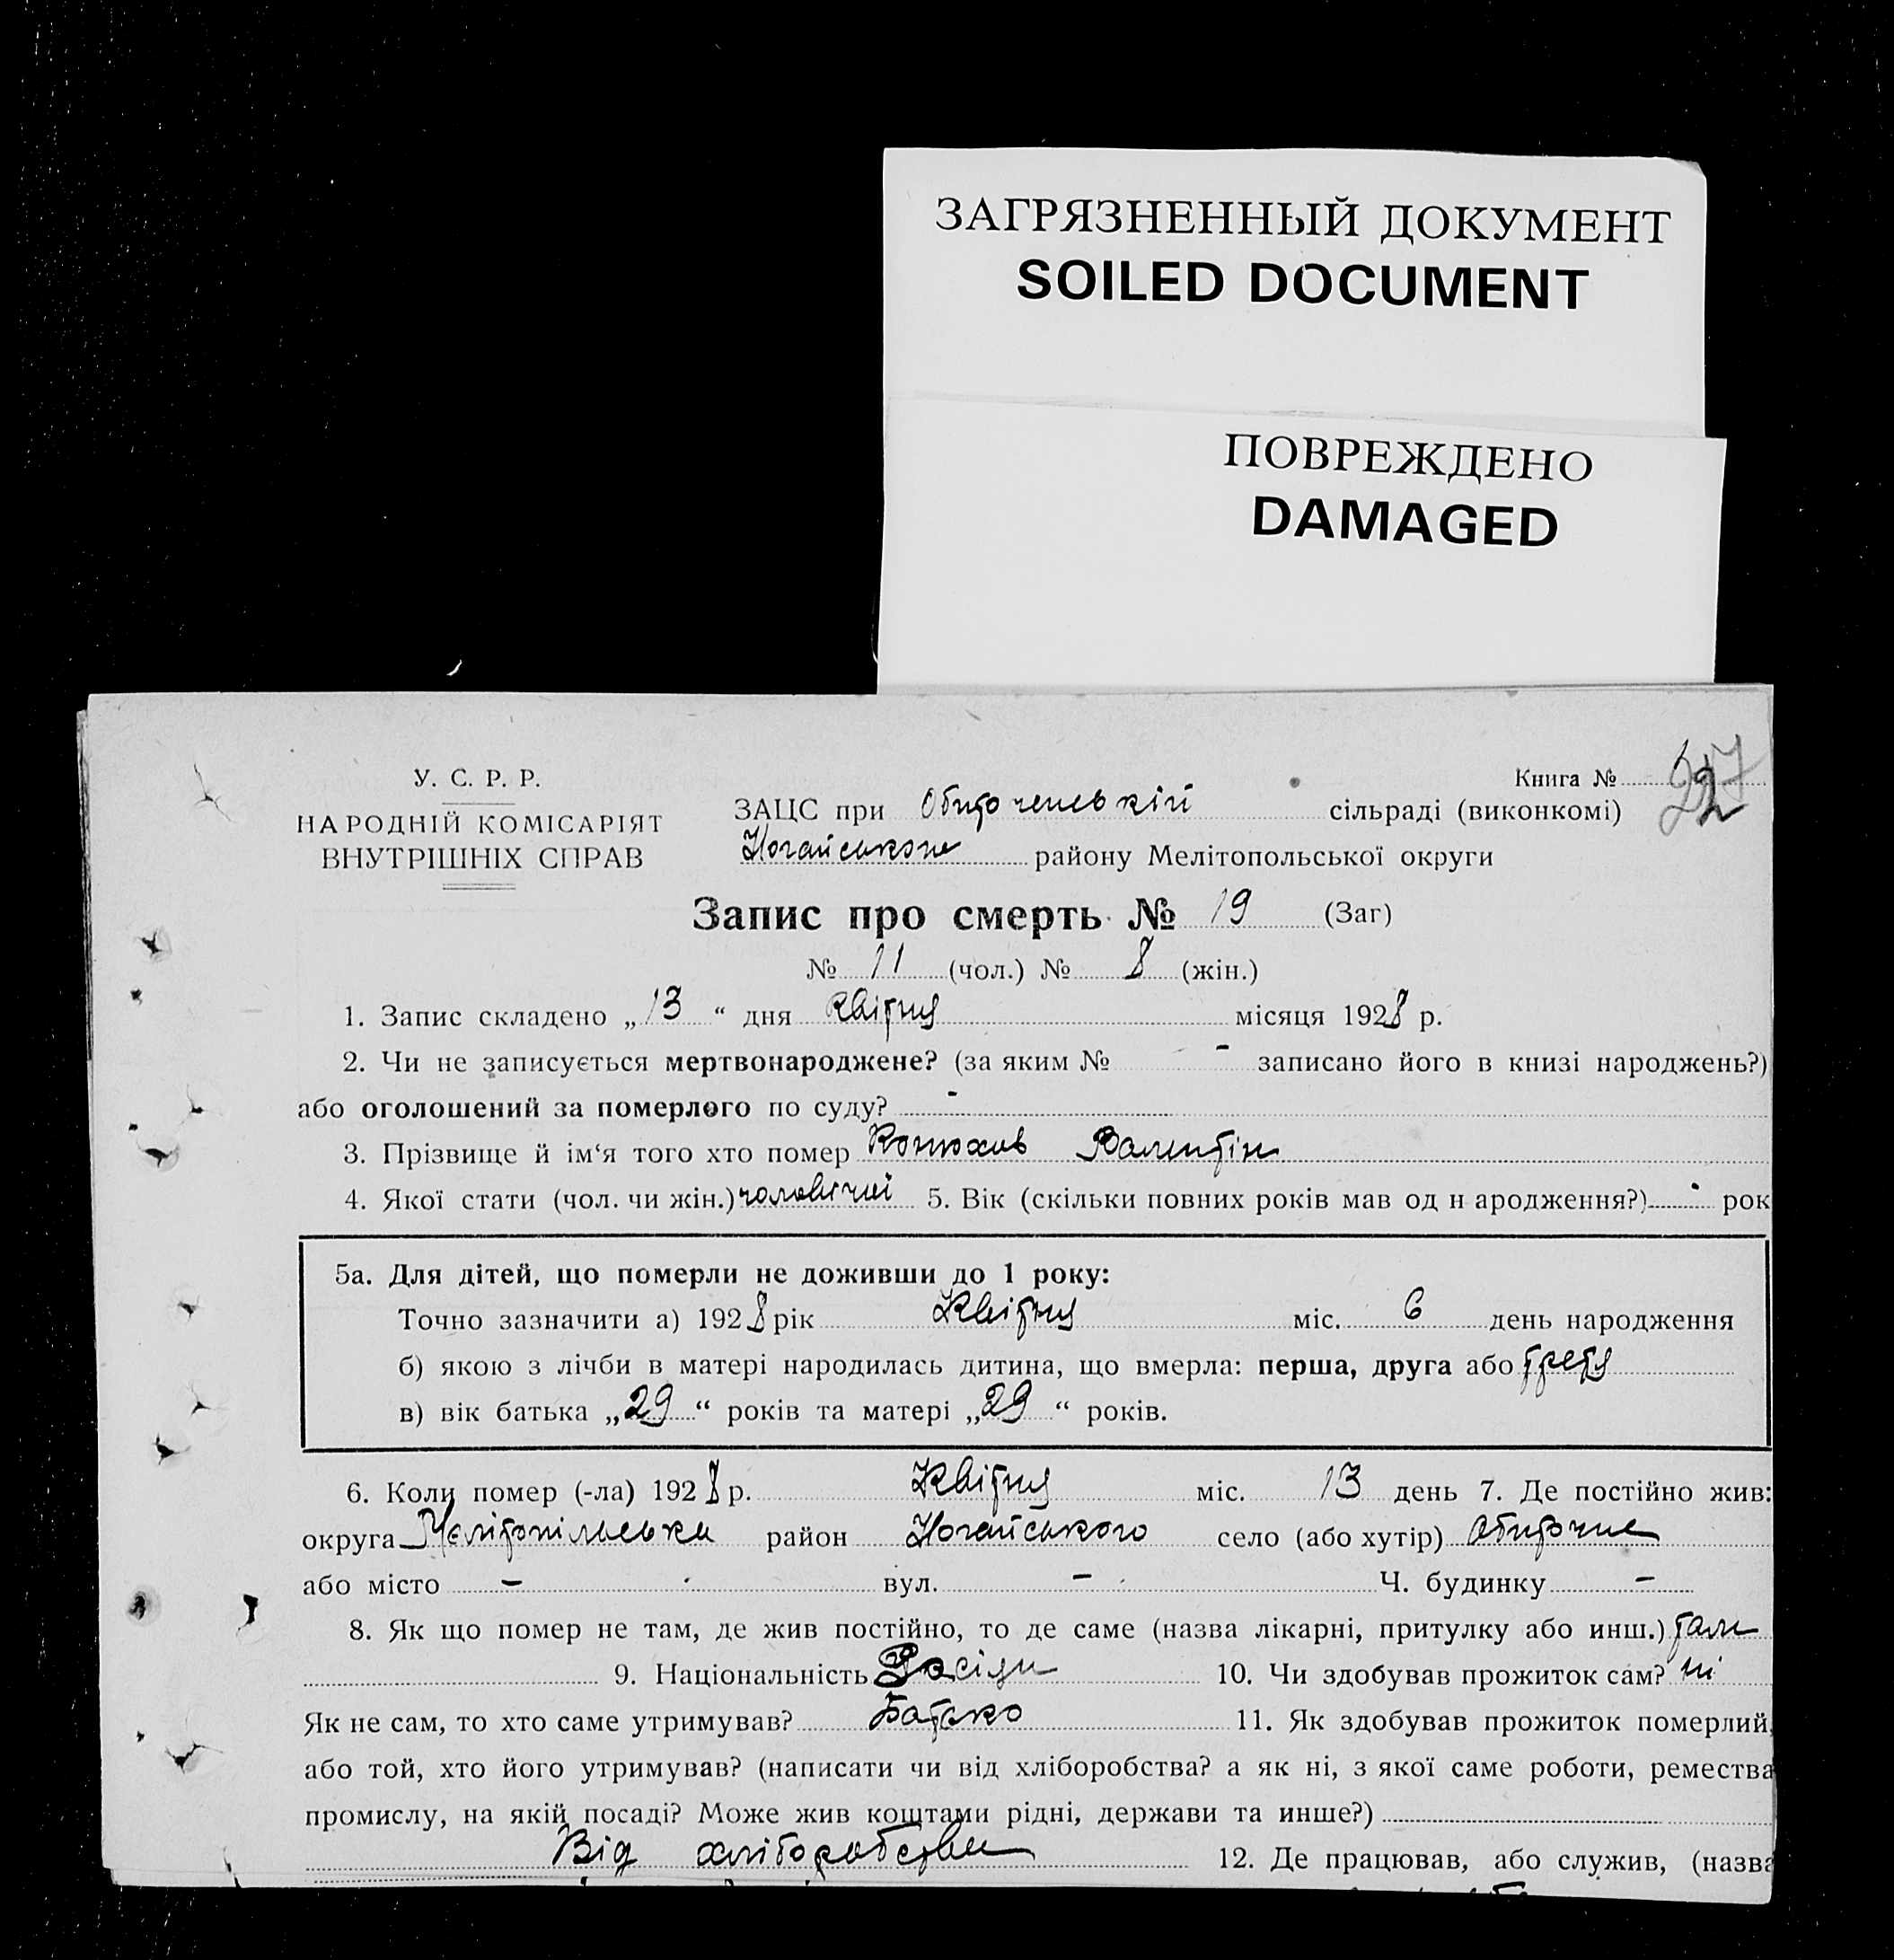 ЗАГРЯЗНЕННЫЙ ДОКУМЕНТ
SOILED DOCUMENT
ПОВРЕЖДЕНО
DAMAGED
У. С. Р. Р.
НАРОДНІЙ КОМІСАРІЯТ
ВНУТРІШНІХ СПРАВ
Книга №
ЗАЦС при Обиточенській сільраді (виконкомі)
Ногайського району Мелітопольської округи
Запис про смерть № 19 (Заг)
№ 11 (чол.) № 8 (жін.)
1. Запис складено „13“ дня квітня місяця 1928 р.
2. Чи не записується мертвонароджене? (за яким № - записано його в книзі народжень?)
або оголошений за померлого по суду? -
3. Прізвище й ім‘я того хто помер Конюхов Валентін
4. Якої стати (чол. чи жін.) чоловічий 5. Вік (скільки повних років мав од н ародження?) - рок
5а. Для дітей, що померли не доживши до 1 року:
Точно зазначити а) 1928 рік Квітня міс. 6 день народження
б) якою з лічби в матері народилась дитина, що вмерла: перша, друга або третя
в) вік батька „29“ років та матері „29“ років.
6. Коли помер (-ла) 1928 р. Квітня міс. 13 день 7. Де постійно жив:
округа Мелітопільська район Ногайського село (або хутір) Обиточне
або місто - вул. - Ч. будинку -
8. Як що помер не там, де жив постійно, то де саме (назва лікарні, притулку або инш.) там
9. Національність 10. Чи здобував прожиток сам? ні
Як не сам, то хто саме утримував? Батько 11. Як здобував прожиток померлий,
або той, хто його утримував? (написати чи від хліборобства? а як ні, з якої саме роботи, ремества
промислу, на якій посаді? Може жив коштами рідні, держави та инше?)
Від хліборобства 12. Де працював, або служив, (назва